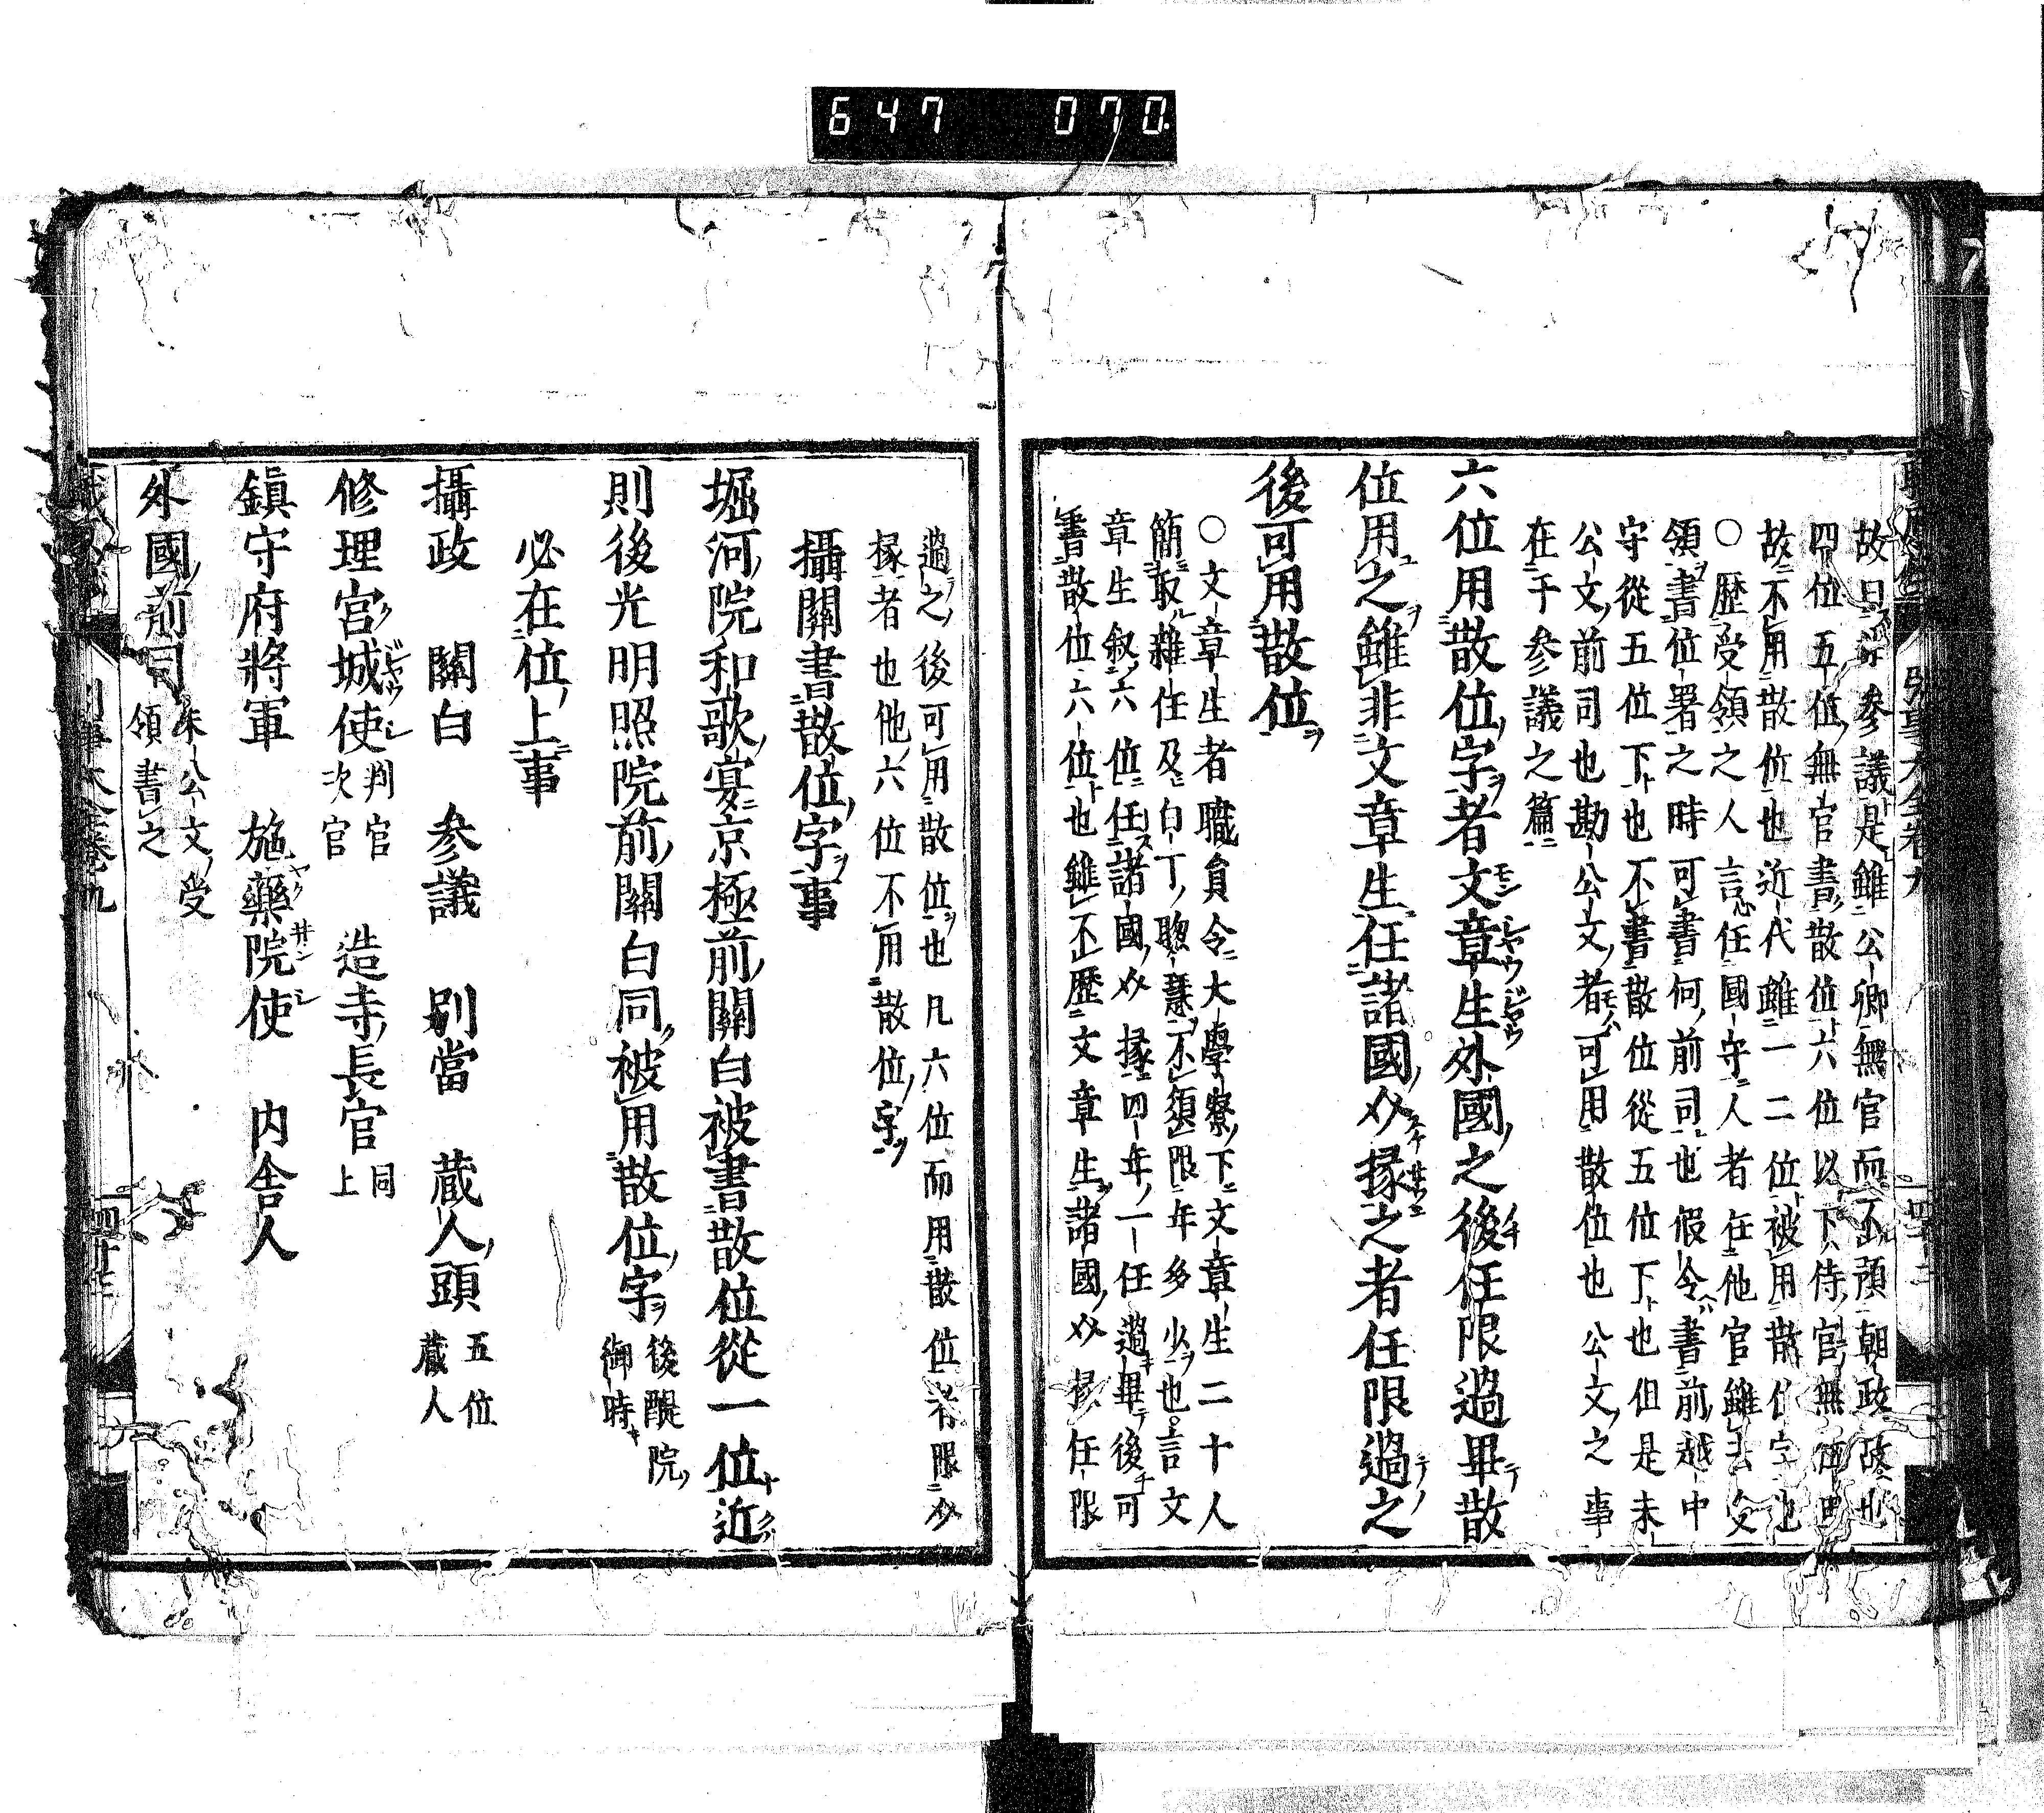 647 070
故曰 参議是雖公卿無官而不預朝政故也
四位五位無官書散位六位以下侍官無
故不用散位也近代雖一二位被用散位
○歴受領之人言心任國守人者任他官雖去父
領書位署之時可書何前司也假令書前越中
守從五位下也不書散位從五位下也但是未
公文前司也勘公文者可用散位也公文之事
在于参議之篇
六位用散位字者文章生外國之後任限過畢散
位用之雖非文章生任諸國𡭗掾之者任限過之
後可用散位
○文章生者職員令大學寮下文章生二十人
簡取雜任及白丁聰慧不須限年多少也言文
章生叙六位任諸國𡭗掾四年一任過畢後可
書散位六位也雖不歴文章生諸國𡭗掾任限
過之後可用散位也凡六位而用散位者限𡭗
掾者也他六位不用散位字
攝關書散位字事
堀河院和歌宴京極前關白被書散位從一位近
則後光明照院前關白同被用散位字後醍院御時
必在位上事
攝政 關白 参議 別當 蔵人頭五位蔵人
修理宮城使判官次官 造寺長官同上
鎮守府將軍 施藥院使 内舎人
外國前司未公文受領書之